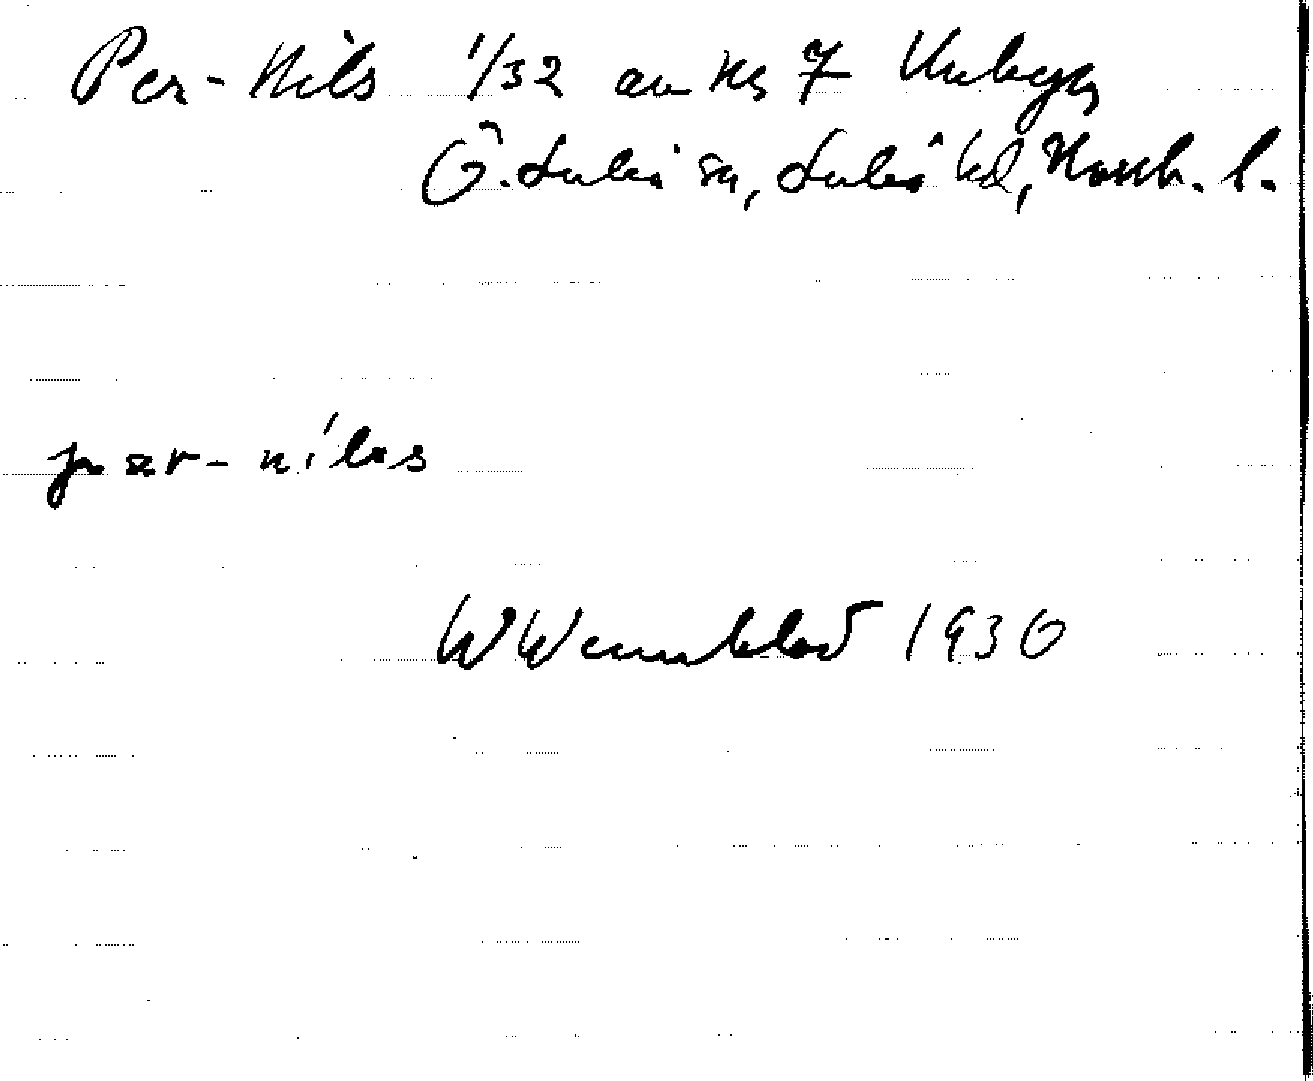 Per-Nils 1/32 av No 7 Unbyn
Ö. Luleå sn, Luleå hd, Norrb. l.
pær-níləs
W Wennblad 1930